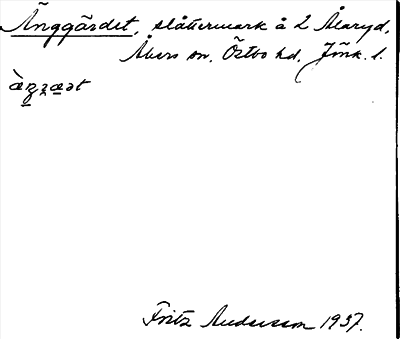 Änggärdet, slåttermark å 2 Ålaryd,
Åkers sn. Östbo hd. Jönk. l.
Fritz Andersson 1937.